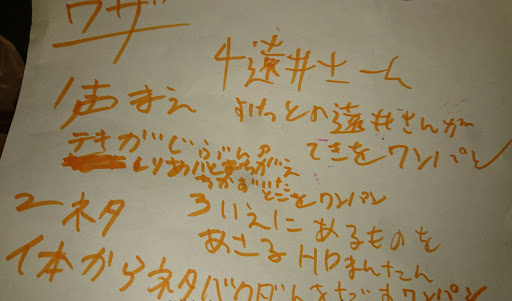 ワザ
1声まえ
テキがじぶんの
しりあいとまちがえ
ちかずいた
とこをワンパン
4遠井さーん
すけっとの遠井さんが
てきをワンパン
2ネタ
体からネタバクダンをだすワンパン
3いえにあるものを
あさるHPまんたん